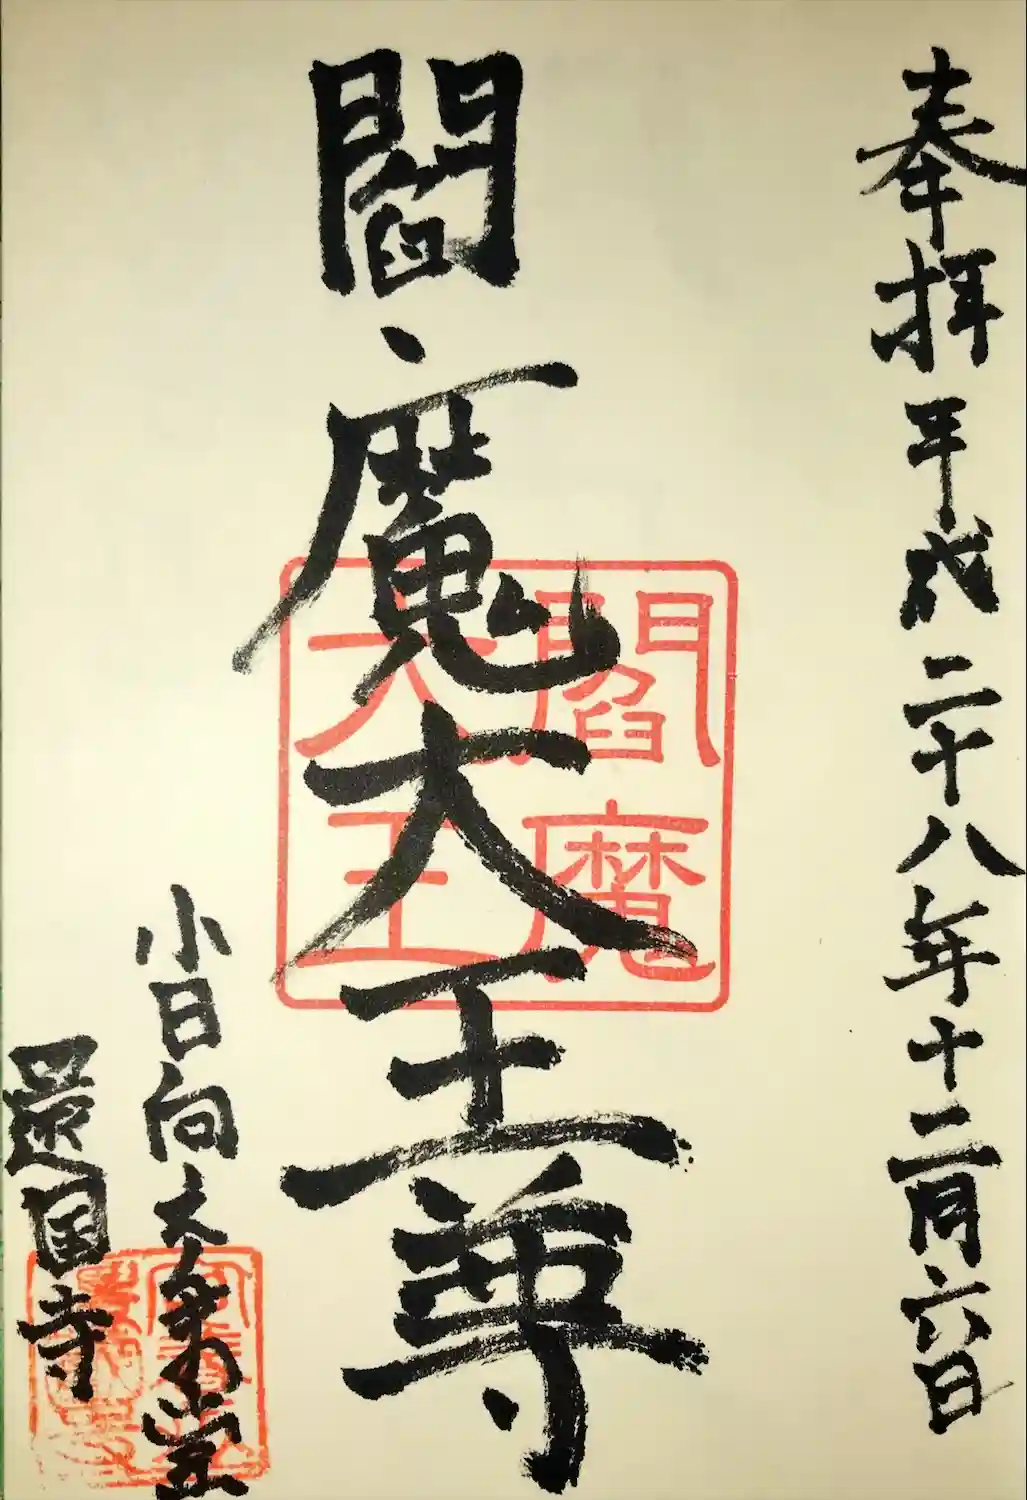 奉拝 平成二十八年十二月六日
閻魔大王尊
閻魔
大王
小日向大乗山
還国寺